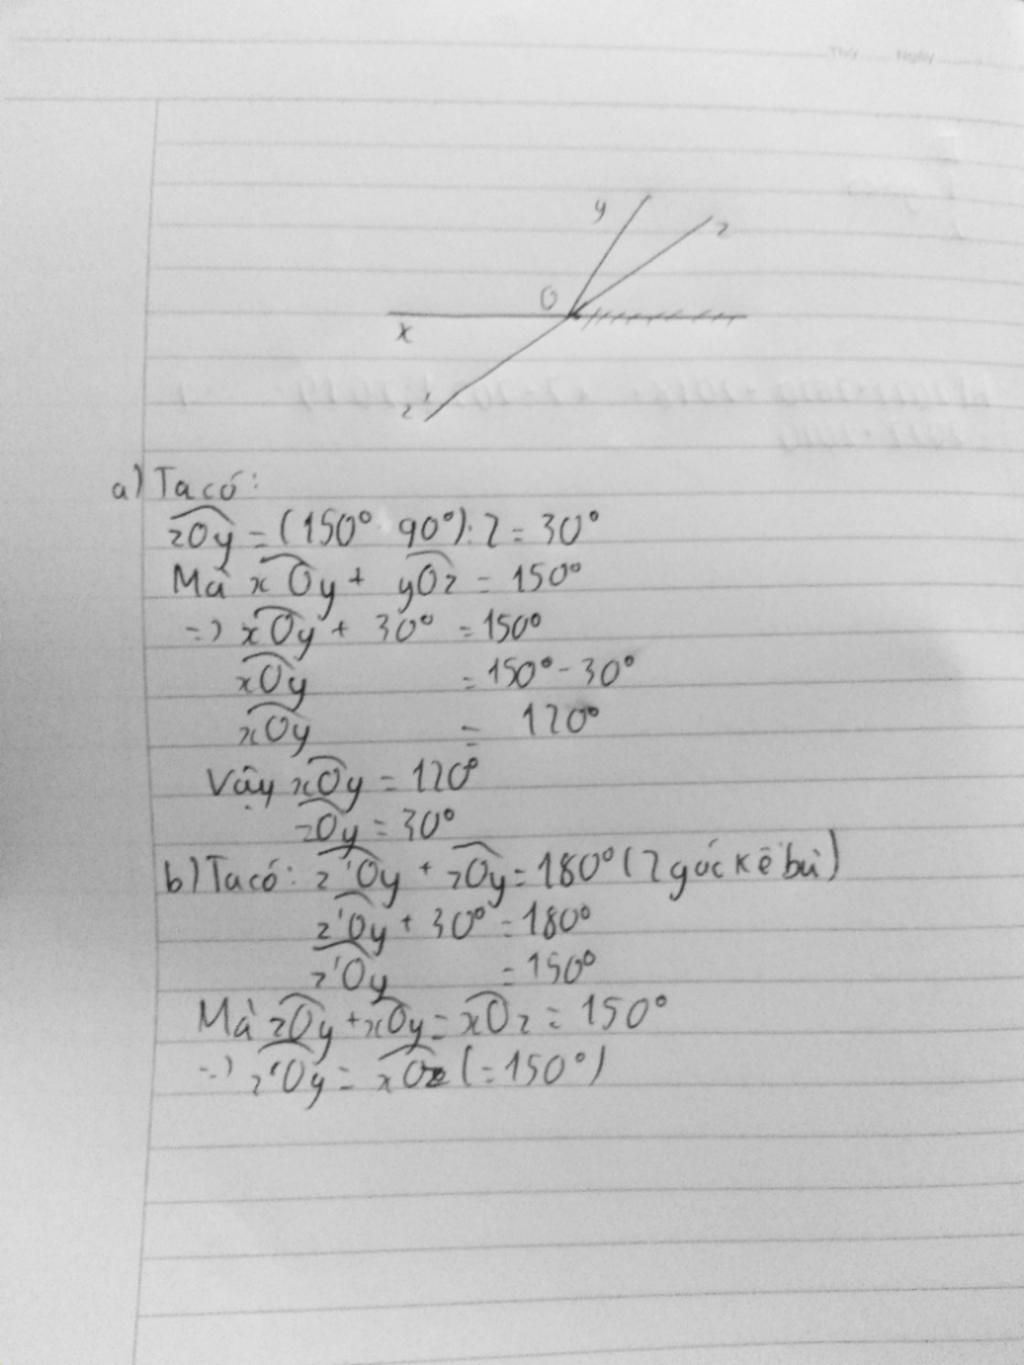 Thứ Ngày
y
z
O
x
z'
a) Ta có:
zOy = (150° - 90°) : 2 = 30°
Mà xOy + yOz = 150°
=> xOy + 30° = 150°
xOy = 150° - 30°
xOy = 120°
Vậy xOy = 120°
zOy = 30°
b) Ta có: z'Oy + zOy = 180° (2 góc kề bù)
z'Oy + 30° = 180°
z'Oy = 150°
Mà zOy + xOy = xOz = 150°
=> z'Oy = xOz (= 150°)